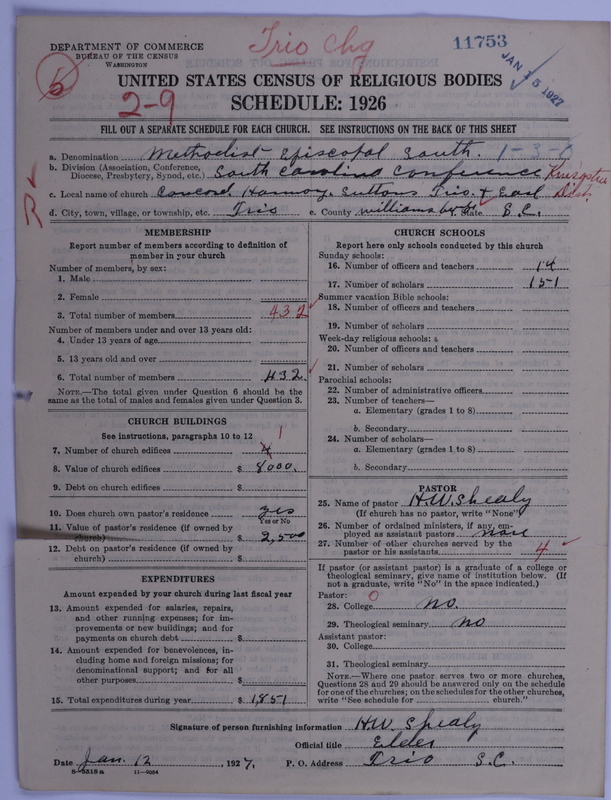 DEPARTMENT OF COMMERCE
BUREAU OF THE CENSUS
WASHINGTON
Trio Chg
11753
JAN 15 1927
5
2-9
UNITED STATES CENSUS OF RELIGIOUS BODIES
SCHEDULE: 1926
FILL OUT A SEPARATE SCHEDULE FOR EACH CHURCH. SEE INSTRUCTIONS ON THE BACK OF THIS SHEET
a. Denomination Methodist Episcopal South. 1-3-0
b. Division (Association, Conference, Diocese, Presbytery, Synod, etc.) South Carolina Conference Kingstree Dist.
R
c. Local name of church Concord Harmony. Suttons Trio. + East
d. City, town, village, or township, etc. Trio e. County Williamsburg State S.C.
MEMBERSHIP
Report number of members according to definition of
member in your church
Number of members, by sex:
1. Male
2. Female
3. Total number of members 432
Number of members under and over 13 years old:
4. Under 13 years of age
5. 13 years old and over
6. Total number of members 432
NOTE.—The total given under Question 6 should be the
same as the total of males and females given under Question 3.
CHURCH BUILDINGS
See instructions, paragraphs 10 to 12 1
7. Number of church edifices 4
8. Value of church edifices $ 8000.
9. Debt on church edifices $
10. Does church own pastor's residence yes
Yes or No
11. Value of pastor's residence (if owned by
church) $ 2,500
12. Debt on pastor's residence (if owned by
church) $
EXPENDITURES
Amount expended by your church during last fiscal year
13. Amount expended for salaries, repairs,
and other running expenses; for im-
provements or new buildings; and for
payments on church debt $
14. Amount expended for benevolences, in-
cluding home and foreign missions; for
denominational support; and for all
other purposes $
15. Total expenditures during year $ 1,851
CHURCH SCHOOLS
Report here only schools conducted by this church
Sunday schools:
16. Number of officers and teachers 14
17. Number of scholars 151
Summer vacation Bible schools:
18. Number of officers and teachers
19. Number of scholars
Week-day religious schools:
20. Number of officers and teachers
21. Number of scholars
Parochial schools:
22. Number of administrative officers
23. Number of teachers—
a. Elementary (grades 1 to 8)
b. Secondary
24. Number of scholars—
a. Elementary (grades 1 to 8)
b. Secondary
PASTOR
25. Name of pastor H.W. Shealy
(If church has no pastor, write "None")
26. Number of ordained ministers, if any, em-
ployed as assistant pastors none
27. Number of other churches served by the
pastor or his assistants 4
If pastor (or assistant pastor) is a graduate of a college or
theological seminary, give name of institution below. (If
not a graduate, write "No" in the space indicated.)
Pastor: 0
28. College no.
29. Theological seminary no
Assistant pastor:
30. College
31. Theological seminary
NOTE.—Where one pastor serves two or more churches,
Questions 28 and 29 should be answered only on the schedule
for one of the churches; on the schedules for the other churches,
write "See schedule for church."
Signature of person furnishing information H.W. Shealy
Official title Elder
Date Jan. 12 1927. P. O. Address Trio S.C.
8-5318a 11-9084